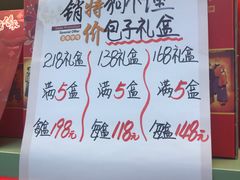 销特和个堡
价包子礼盒
218礼盒 138礼盒 168礼盒
满5盒 满5盒 满5盒
每盒198元 每盒118元 每盒148元